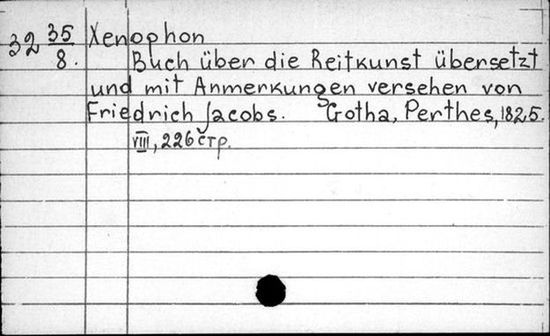 32 35/8. Xenophon
Buch über die Reitkunst übersetzt
und mit Anmerkungen versehen von
Friedrich Jacobs. Gotha, Perthes, 1825.
VIII, 226 стр.